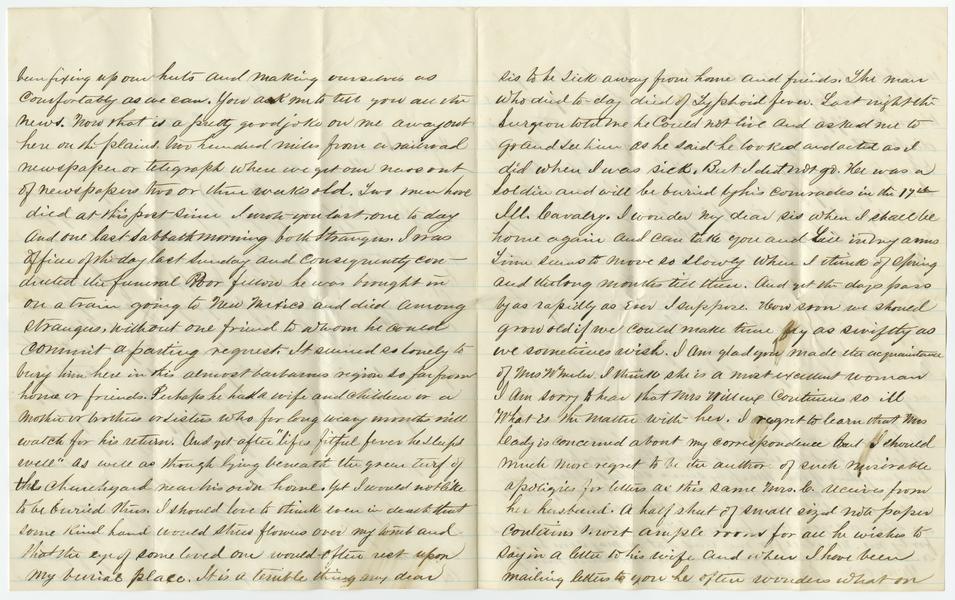 been fixing up our huts and making ourselves as
comfortably as we can. You ask me to tell you all the
news. Now that is a pretty good joke on me away out
here on the plains. two hundred miles from a railroad
newspaper or telegraph where we get our news out
of newspapers two or three weeks old. Two men have
died at this post since I wrote you last, one to day
and one last sabbath morning both strangers. I was
officer of the day last Sunday and consequently con-
ducted the funeral Poor fellow he was brought in
on a train going to New Mexico and died among
strangers, without one friend to whom he could
commit a parting request. It seemed so lonely to
bury him here in this almost barbarous region so far from
home or friends. Perhaps he had a wife and children or a
mother or brothers or sister who for long weary months will
watch for his return. And yet after "lifes fitful fever he sleeps
well" as well as though lying beneath the green turf of
the Churchyard near his own home. Yet I would not like
to be buried thus. I should love to think even in death that
some kind hand would strew flowers over my tomb and
that the eye of some loved one would often rest upon
my burial place. It is a terrible thing my dear
sis to be sick away from home and friends. The man
who died to-day died of Typhoid fever. Last night the
Surgeon told me he could not live and asked me to
go and see him as he said he looked and acted as I
did when I was sick. But I did not go. He was a
soldier and will be buried by his comrades in the 17th
Ill. Cavalry. I wonder my dear sis when I shall be
home again and can take you and in my arms
Time seems to move so slowly when I think of Spring
and the long months till then. And yet the days pass
by as rapidly as ever I suppose. How soon we should
grow old if we could make time fly as swiftly as
we sometimes wish. I am glad you made the acquaintance
of Mrs I think she is a most excellent woman
I am sorry to hear that Mrs continues so ill
What is the matter with her. I regret to learn that Mrs
is concerned about my correspondence But I should
much more regret to be the author of such miserable
apologies for letters as this same Mrs. C. receives from
her husband. A half sheet of small sized note paper
contains most ample room for all he wishes to
say in a letter to his wife and when I have been
mailing letters to you he often wonders what on